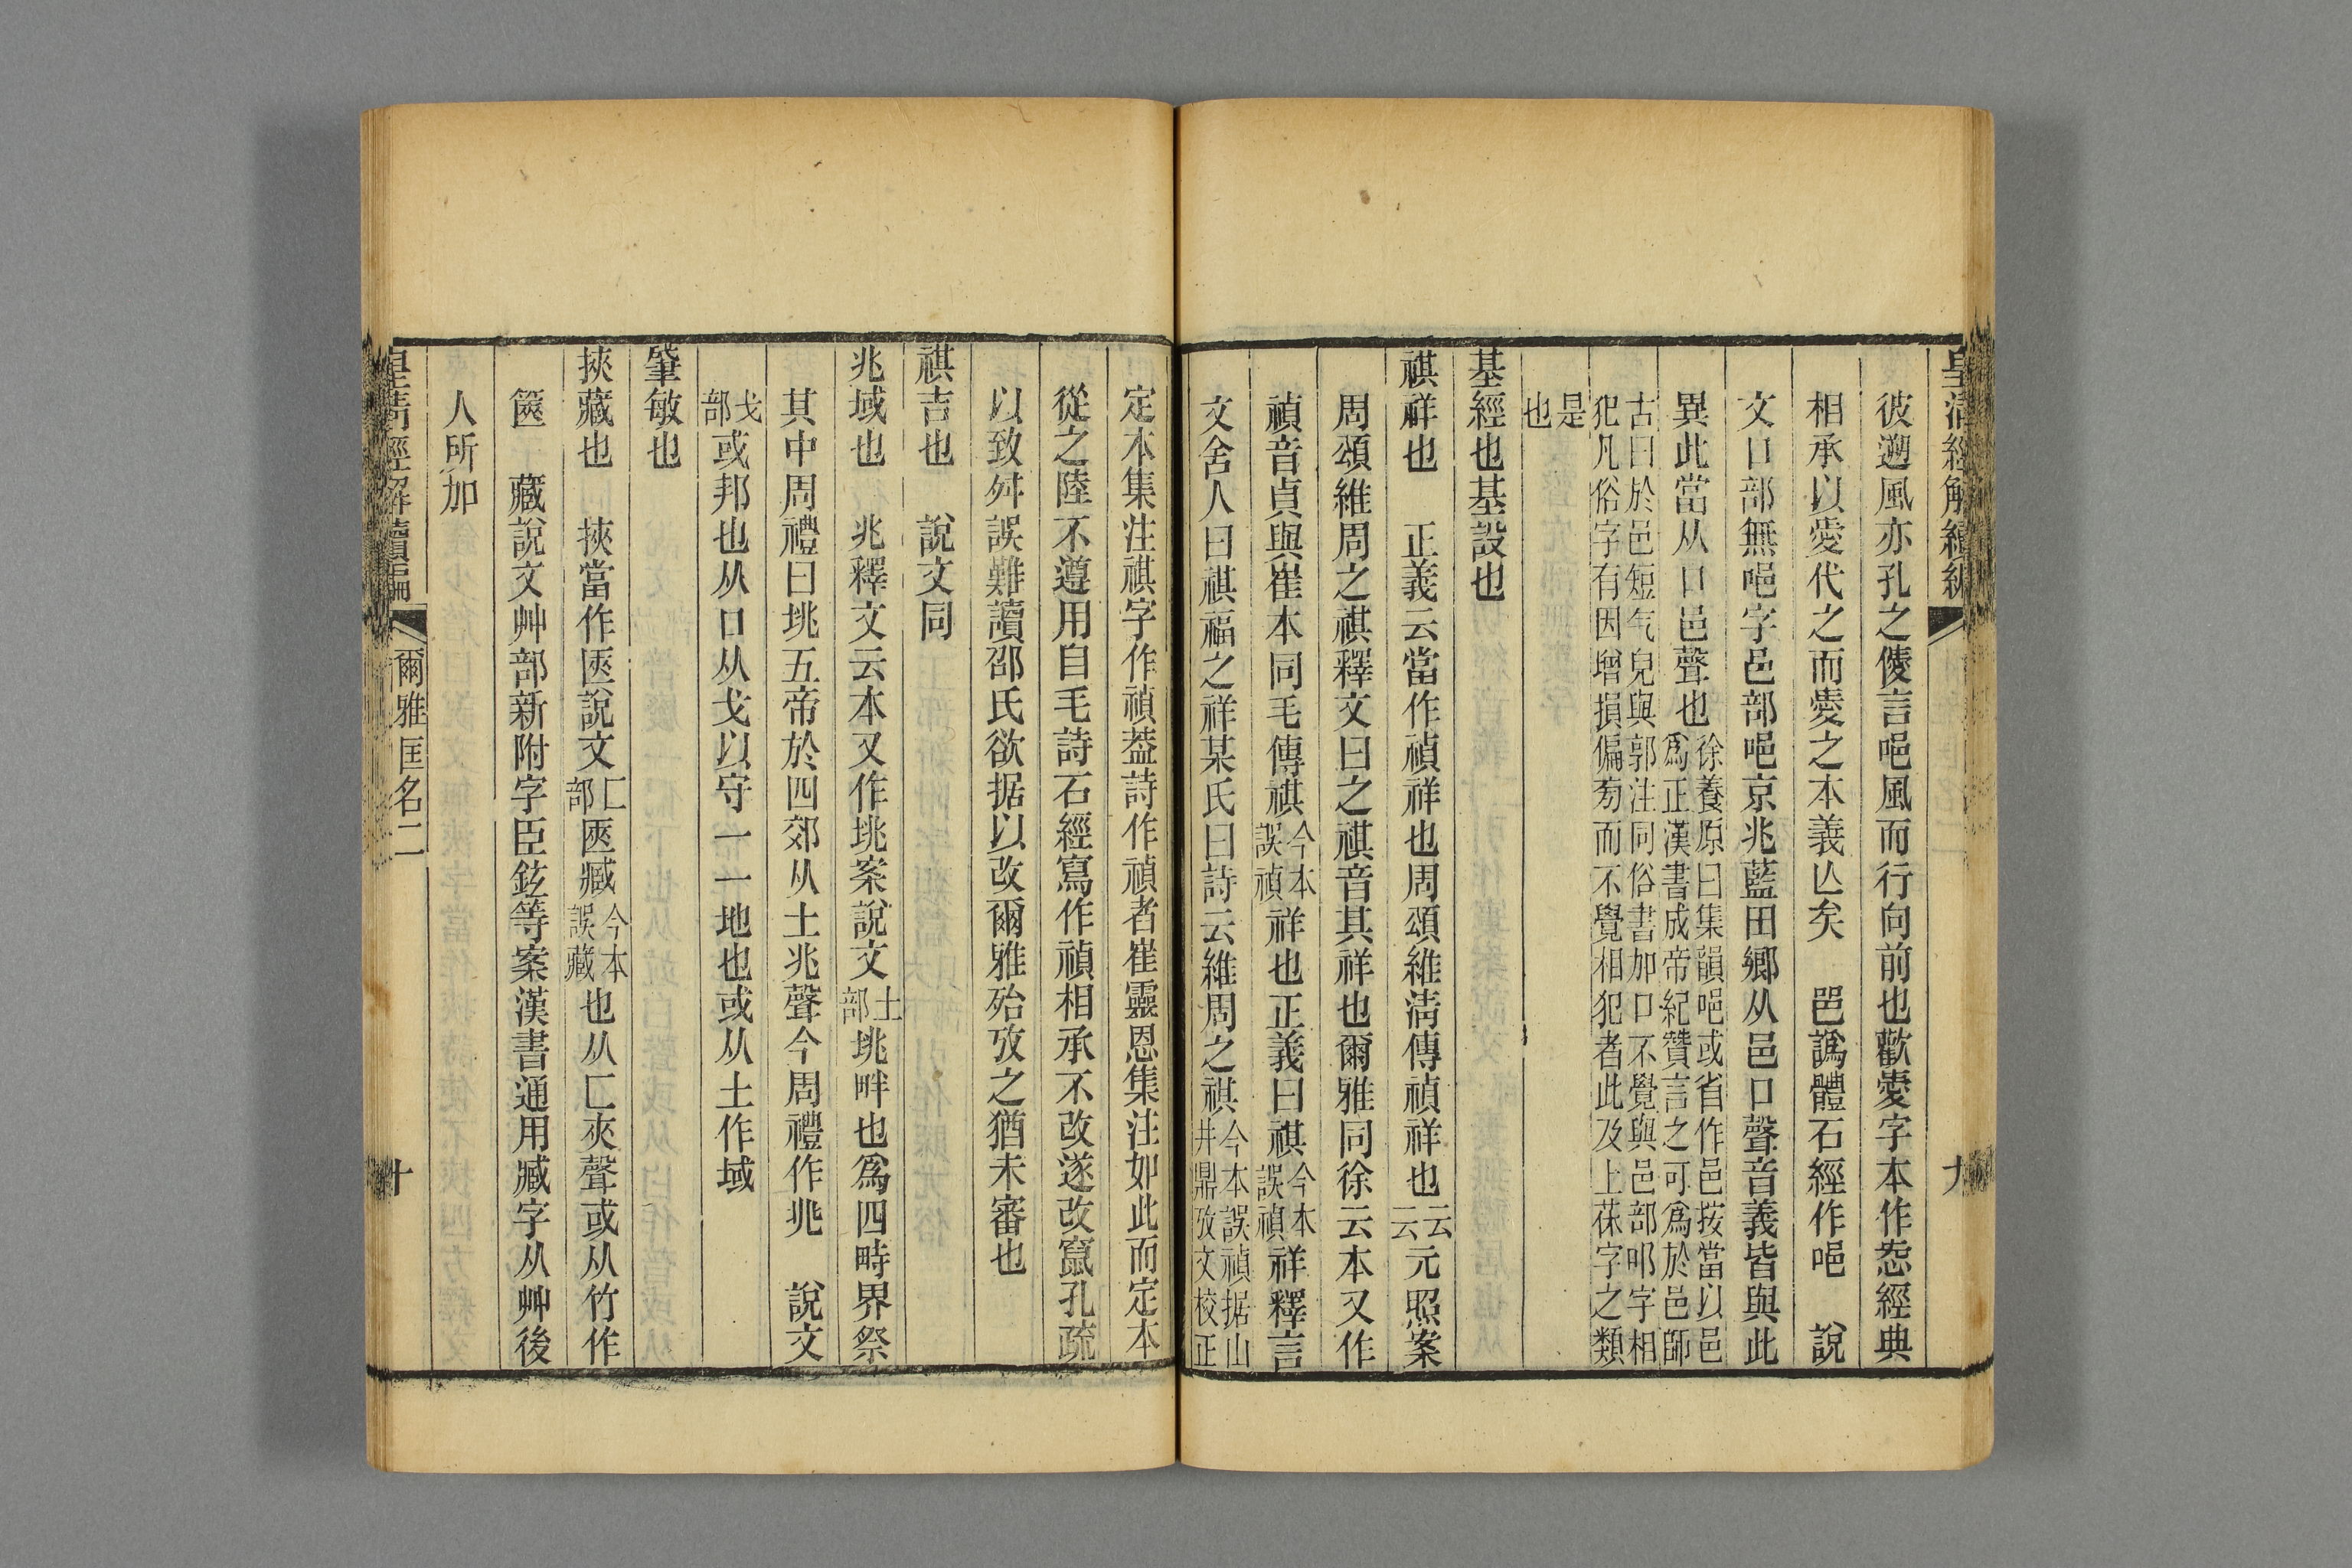 皇清經解續編
九
彼遡風亦孔之僾言唈風而行向前也歡愛字本作㤅經典
相承以愛代之而愛之本義亾矣 唈譌體石經作唈 說
文口部無唈字邑部唈京兆藍田鄉从邑口聲音義皆與此
異此當从口邑聲也徐養原曰集韻唈或省作邑按當以邑爲正漢書成帝紀贊言之可爲於邑師
古曰於邑短气皃與郭注同俗書加口不覺與邑部唈字相犯凡俗字有因增損偏旁而不覺相犯者此及上茠字之類
是也
基經也基設也
祺祥也 正義云當作禎祥也周頌維淸傳禎祥也云云元照案
周頌維周之祺釋文曰之祺音其祥也爾雅同徐云本又作
禎音貞與崔本同毛傳祺今本誤禎祥也正義曰祺今本誤禎祥釋言
文舍人曰祺福之祥某氏曰詩云維周之祺今本誤禎据山井鼎攷文校正
定本集注祺字作禎葢詩作禎者崔靈恩集注如此而定本
從之陸不遵用自毛詩石經寫作禎相承不改遂改竄孔疏
以致舛誤難讀邵氏欲据以改爾雅殆攷之猶未審也
祺吉也 說文同
兆域也 兆釋文云本又作垗案說文土部垗畔也爲四畤界祭
其中周禮曰垗五帝於四郊从土兆聲今周禮作兆 說文
戈部或邦也从口从戈以守一一地也或从土作域
肇敏也
挾藏也 挾當作匧說文匚部匧臧今本誤藏也从匚夾聲或从竹作
篋 藏說文艸部新附字臣鉉等案漢書通用臧字从艸後
人所加
皇清經解續編
爾雅匡名二
十